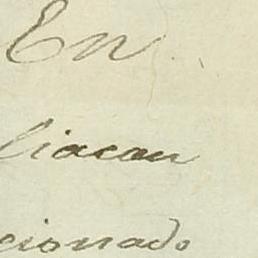 En
liacan
cionado